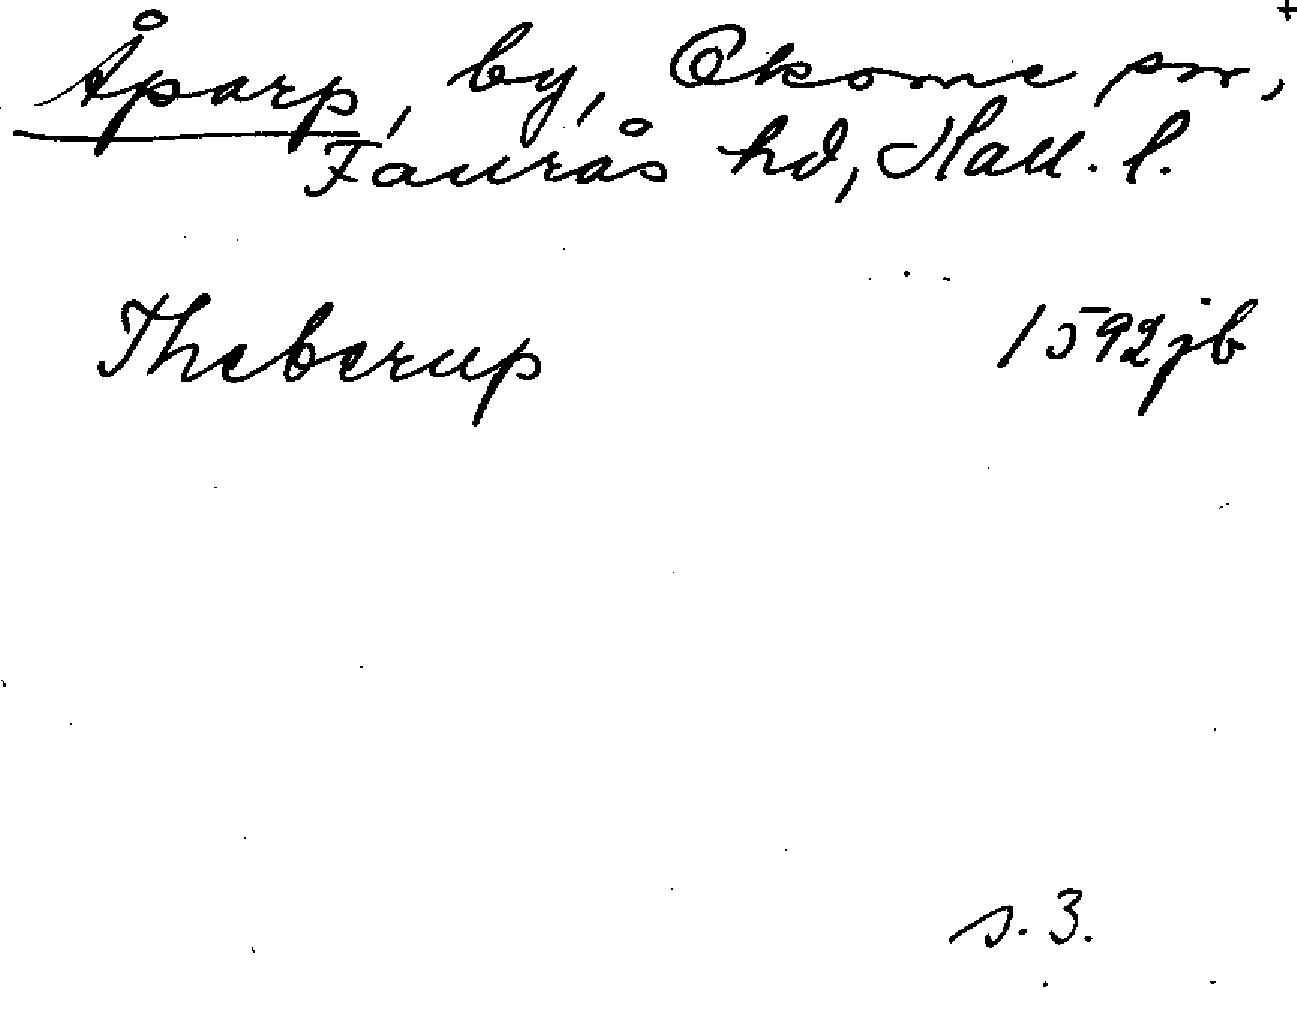 +
Åparp, by, Okome sn,
Faurås hd, Hall. l.
Theberup 1592 jb
s. 3.